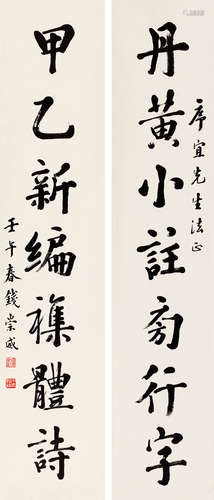 丹黃小註旁行字
序宜先生法正
甲乙新編襍體詩
壬午春錢崇威